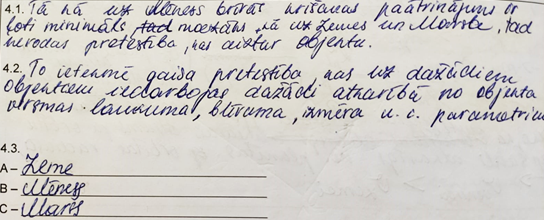 4.1. Tā kā uz Mēness brīvās krišanas paātrinājums ir
ļoti minimāls, tad mazāks, kā uz Zemes un Marsa, tad
nerodas pretestība, kas aiztur objektu.
4.2. To ietekmē gaisa pretestība, kas uz dažādiem
objektiem iedarbojas dažādi atkarībā no objekta
virsmas laukuma, blīvuma, izmēra u.c. parametriem
4.3.
A – Zeme
B – Mēness
C – Marss